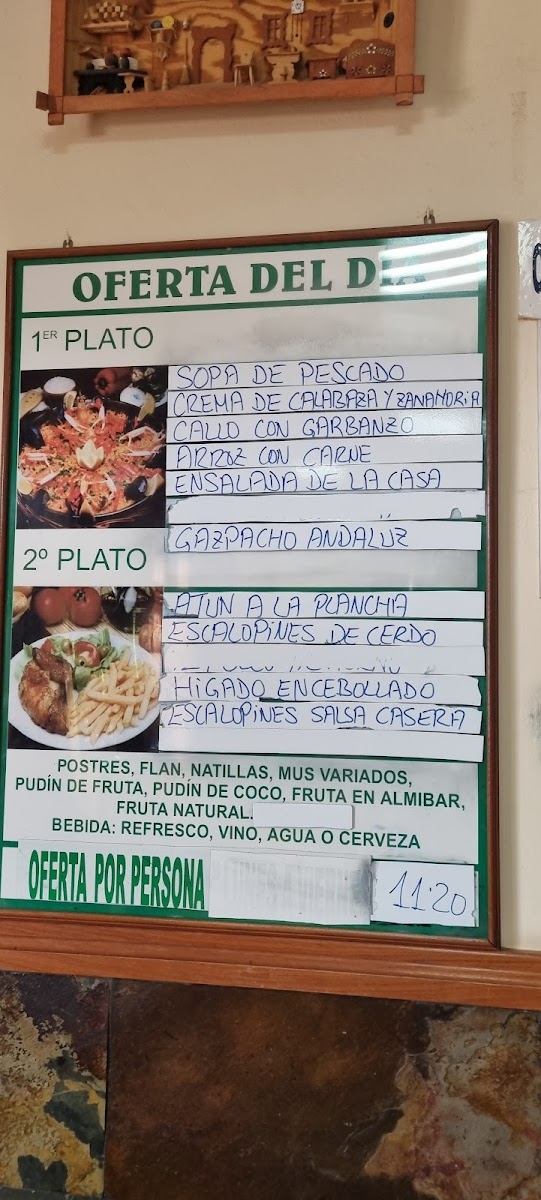 OFERTA DEL DÍA
1ER PLATO
SOPA DE PESCADO
CREMA DE CALABAZA Y ZANAHORIA
CALLO CON GARBANZO
ARROZ CON CARNE
ENSALADA DE LA CASA
GAZPACHO ANDALUZ
2º PLATO
ATUN A LA PLANCHA
ESCALOPINES DE CERDO
HIGADO ENCEBOLLADO
ESCALOPINES SALSA CASERA
POSTRES, FLAN, NATILLAS, MUS VARIADOS,
PUDÍN DE FRUTA, PUDÍN DE COCO, FRUTA EN ALMIBAR,
FRUTA NATURAL.
BEBIDA: REFRESCO, VINO, AGUA O CERVEZA
OFERTA POR PERSONA
11'20